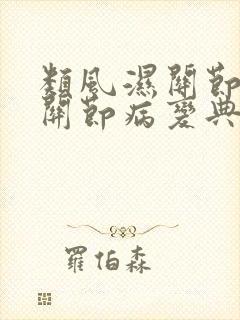 類風濕關節
關節病變典
羅伯森